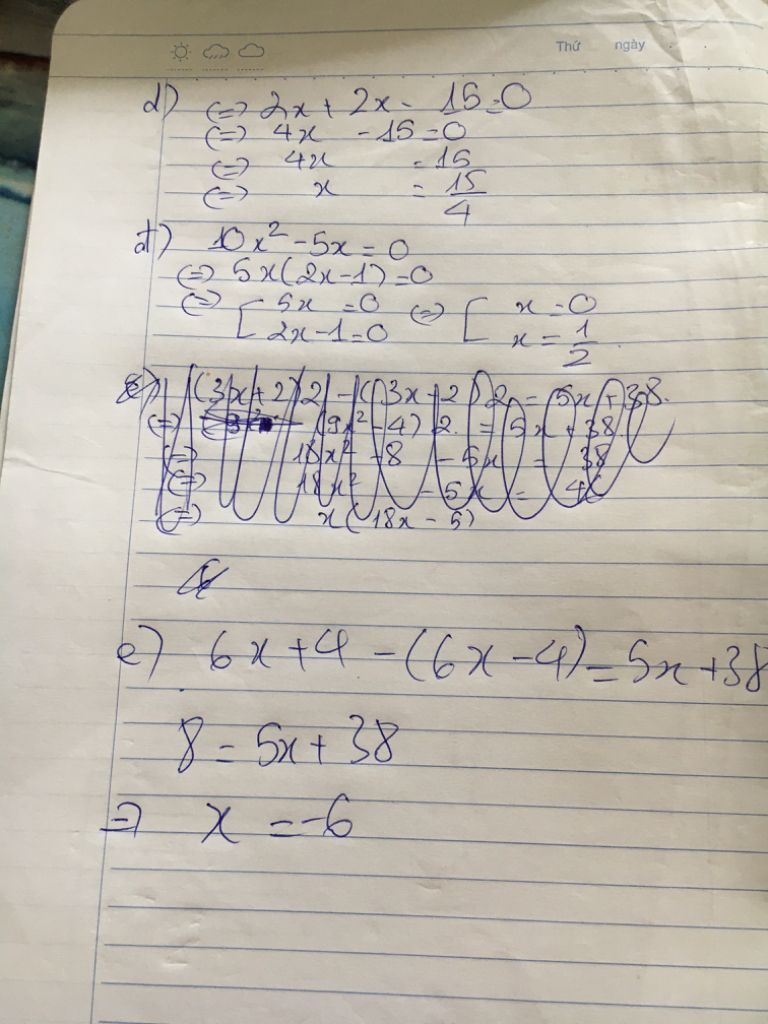 Thứ ngày
d) (=) 2x + 2x - 15 = 0
(=) 4x - 15 = 0
(=) 4x = 15
(=) x = 15/4
đ) 10x² - 5x = 0
(=) 5x(2x-1) = 0
(=) [ 5x = 0 (=) [ x = 0
2x-1 = 0 x = 1/2
e) (3x+2) 2 - (3x-2) 2 = 5x + 38.
(=) (9x² - 4) 2 = 5x + 38
(=) 18x² - 8 - 5x = 38
(=) 18x² - 5x = 46
(=) x(18x - 5)
e) 6x + 4 - (6x - 4) = 5x + 38
8 = 5x + 38
=) x = -6